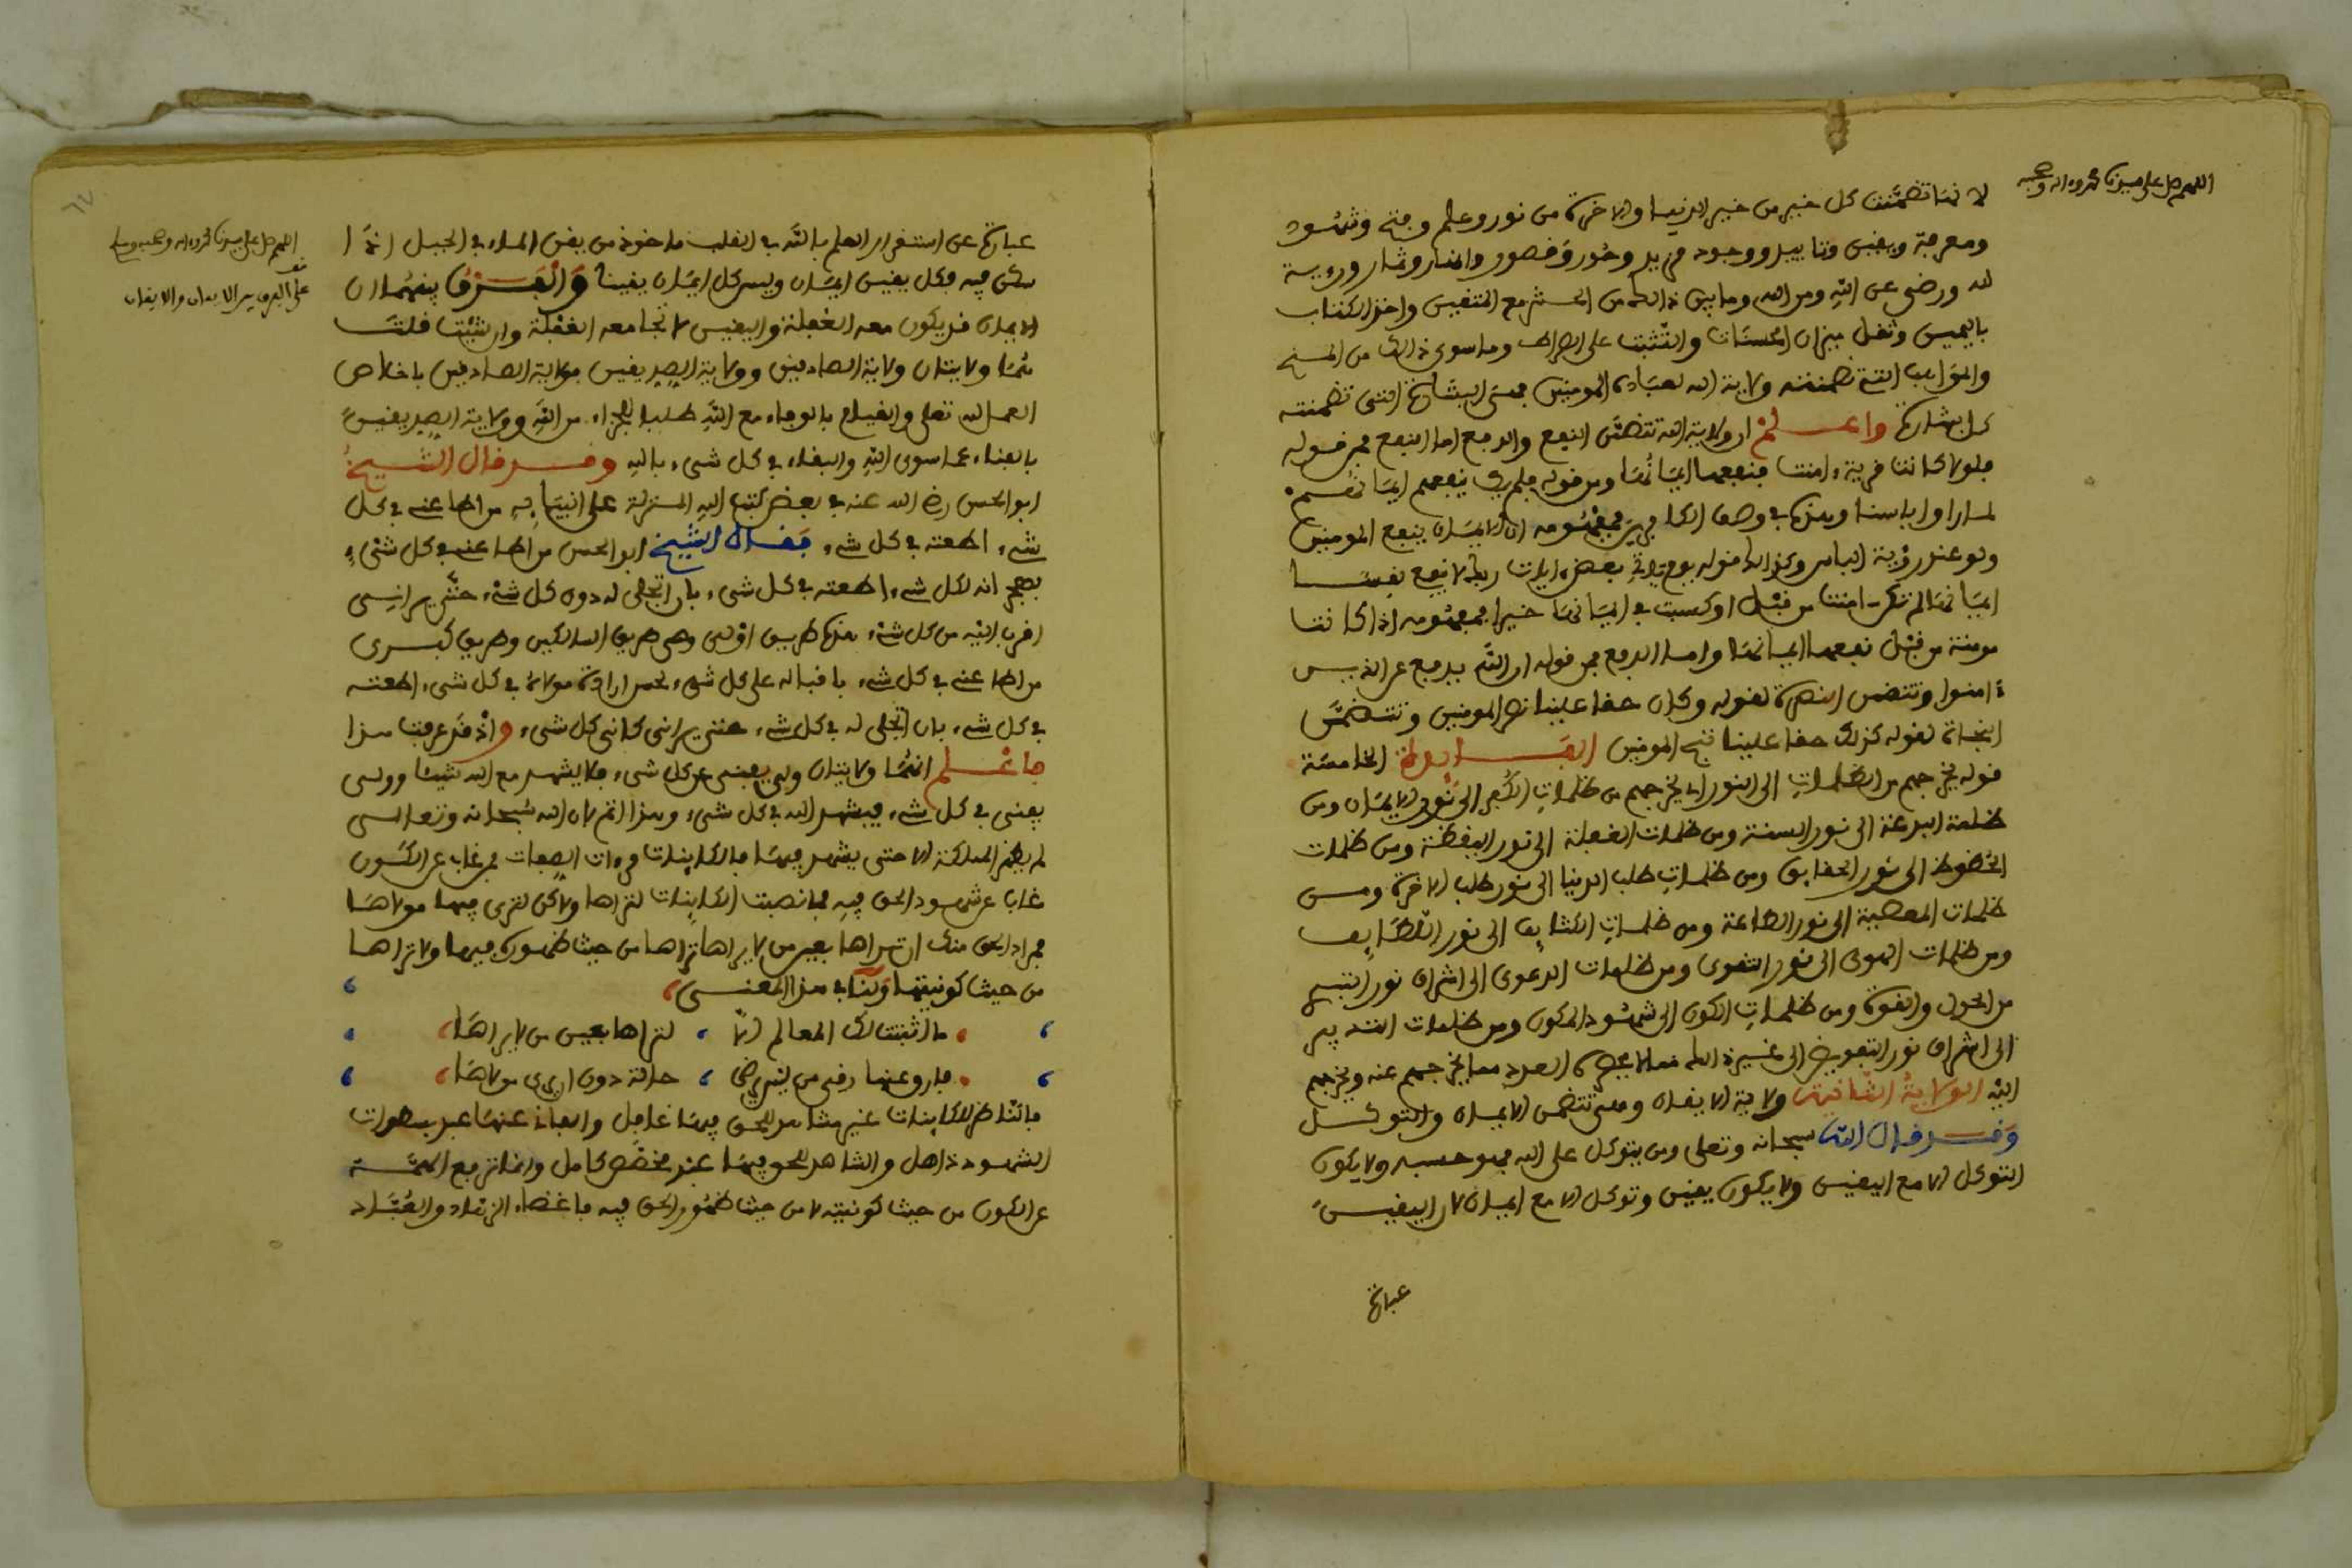 اللهم صل على سيدنا محمد وءاله وصحبه
لانها تضمنت كل خير من خير الدنيا والاخرة من نور وعلم وفتح وشهود
ومعرفة ويقين وتاييد ووجود مزيد وحور وقصور وانهار وثمار ورءية
لله ورضى عن الله ومن الله وما بين ذالك من الحشر مع المتقين واخذ الكتاب
باليمين وثقل ميزان الحسنات والتثبت على الصراط وما سوى ذالك من المنح
والمواهب التى تضمنته ولاية الله لعباده المومنين فهى البشارة التى تضمنته
كل بشارة واعلم ان ولاية الله تتضمن النفع والدفع اما النفع فمن قوله
فلولا كانت قرية ءامنت فنفعها ايمانها ومن قوله فلم يك ينفعهم ايمانهم
لما راوا باسنا وهذا فى وصف الكافرين فمفهومه ان الايمان ينفع المومنين
ولو عند رؤية الباس وكذالك قوله يوم ياتى بعض ءايات ربك لا ينفع نفسا
ايمانها لم تكن ءامنت من قبل او كسبت فى ايمانها خيرا فمفهومه اذا كانت
مومنة من قبل نفعها ايمانها واما الدفع فمن قوله ان الله يدفع عن الذين
ءامنوا وتتضمن النصرة لقوله وكان حقا علينا نصر المومنين وتتضمن
النجاة لقوله كذلك حقا علينا ننج المومنين الفايدة الخامسة
قوله يخرجهم من الظلمات الى النور اى يخرجهم من ظلمات الكفر الى نور الايمان ومن
ظلمة البدعة الى نور السنة ومن ظلمات الغفلة الى نور اليقظة ومن ظلمات
الحظوظ الى نور الحقايق ومن ظلمات طلب الدنيا الى نور طلب الاخرة ومن
ظلمات المعصية الى نور الطاعة ومن ظلمات الكثايف الى نور اللطايف
ومن ظلمات الهوى الى نور التقوى ومن ظلمات الدعوى الى اشراق نور التبرى
من الحول والقوة ومن ظلمات الكون الى شهود المكون ومن ظلمات التدبير
الى اشراق نور التفويض الى غير ذالك مما لا يحصره العدد مما يخرجهم عنه ويخرجهم
اليه الولاية الثانية ولاية الايقان وهى تتضمن الايمان والتوكل
وقد قال الله سبحانه وتعلى ومن يتوكل على الله فهو حسبه ولا يكون
التوكل الا مع اليقين ولا يكون يقين وتوكل الا مع ايمان لان اليقين
عبارة
٦٧
اللهم صل على سيدنا محمد وءاله وصحبه وسلم
قف
على الفرق بين الايمان والايقان
عبارة عن استقرار العلم بالله فى القلب ماخوذ من يقن الماء فى الجبل اذا
سكن فيه فكل يقين ايمان وليس كل ايمان يقينا والفرق بينهما ان
الايمان قد يكون معه الغفلة واليقين لا تجامعه الغفلة وان شئت قلت
هما ولايتان ولاية الصادقين وولاية الصديقين فولاية الصادقين باخلاص
العمل لله تعلى والقيام بالوفاء مع الله طلبا للجزاء من الله وولاية الصديقين
بالفناء عما سوى الله والبقاء فى كل شىء بالله وقد قال الشيخ
ابو الحسن رضى الله عنه فى بعض كتب الله المنزلة على انبيايه من اطاعنى فى كل
شىء اطعته فى كل شىء فقال الشيخ ابو الحسن من اطاعنى فى كل شىء
بهجرانه لكل شىء اطعته فى كل شىء بان اتجلى له دون كل شىء حتى يرانى
اقرب اليه من كل شىء هذه طريق اولى وهى طريق السالكين وطريق كبرى
من اطاعنى فى كل شىء باقباله على كل شىء لحسن ارادة مولاه فى كل شىء اطعته
فى كل شىء بان اتجلى له فى كل شىء حتى يرانى كانى كل شىء واذ قد عرفت هذا
فاعلم انهما ولايتان ولى يفنى عن كل شىء فلا يشهد مع الله شيئا وولى
يفنى فى كل شىء فيشهد الله فى كل شىء وهذا اتم لان الله سبحانه وتعالى
لم يظهر المملكة الا حتى يشهد فيها فالكاينات مرءات الصفات فمن غاب عن الكون
غاب عن شهود الحق فيه فما نصبت الكاينات لتراها ولاكن لترى فيها مولاها
فمراد الحق منك ان تراها بعين من لا يراها تراها من حيث ظهوره فيها ولا تراها
من حيث كونيتها ولنا فى هذا المعنى
ما اثبتت لك المعالم الا ، لتراها بعين من لا يراها
فارق عنها رقى من ليس يرضى ، حالة دون ان يرى مولاها
فالناظر للكاينات غير مشاهد للحق فيها غافل والفانى عنها عبد بسطوات
الشهود ذاهل والشاهد للحق فيها عبد مخصص كامل وانما ترفع الهمة
عن الكون من حيث كونيته لا من حيث ظهور الحق فيه فاغضاء الزهاد والعباد